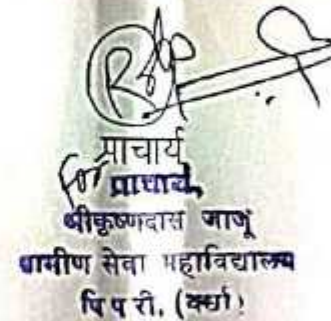 प्राचार्य
For प्राचार्य,
श्रीकृष्णदास जाजू
ग्रामीण सेवा महाविद्यालय
पिपरी. (वर्धा)